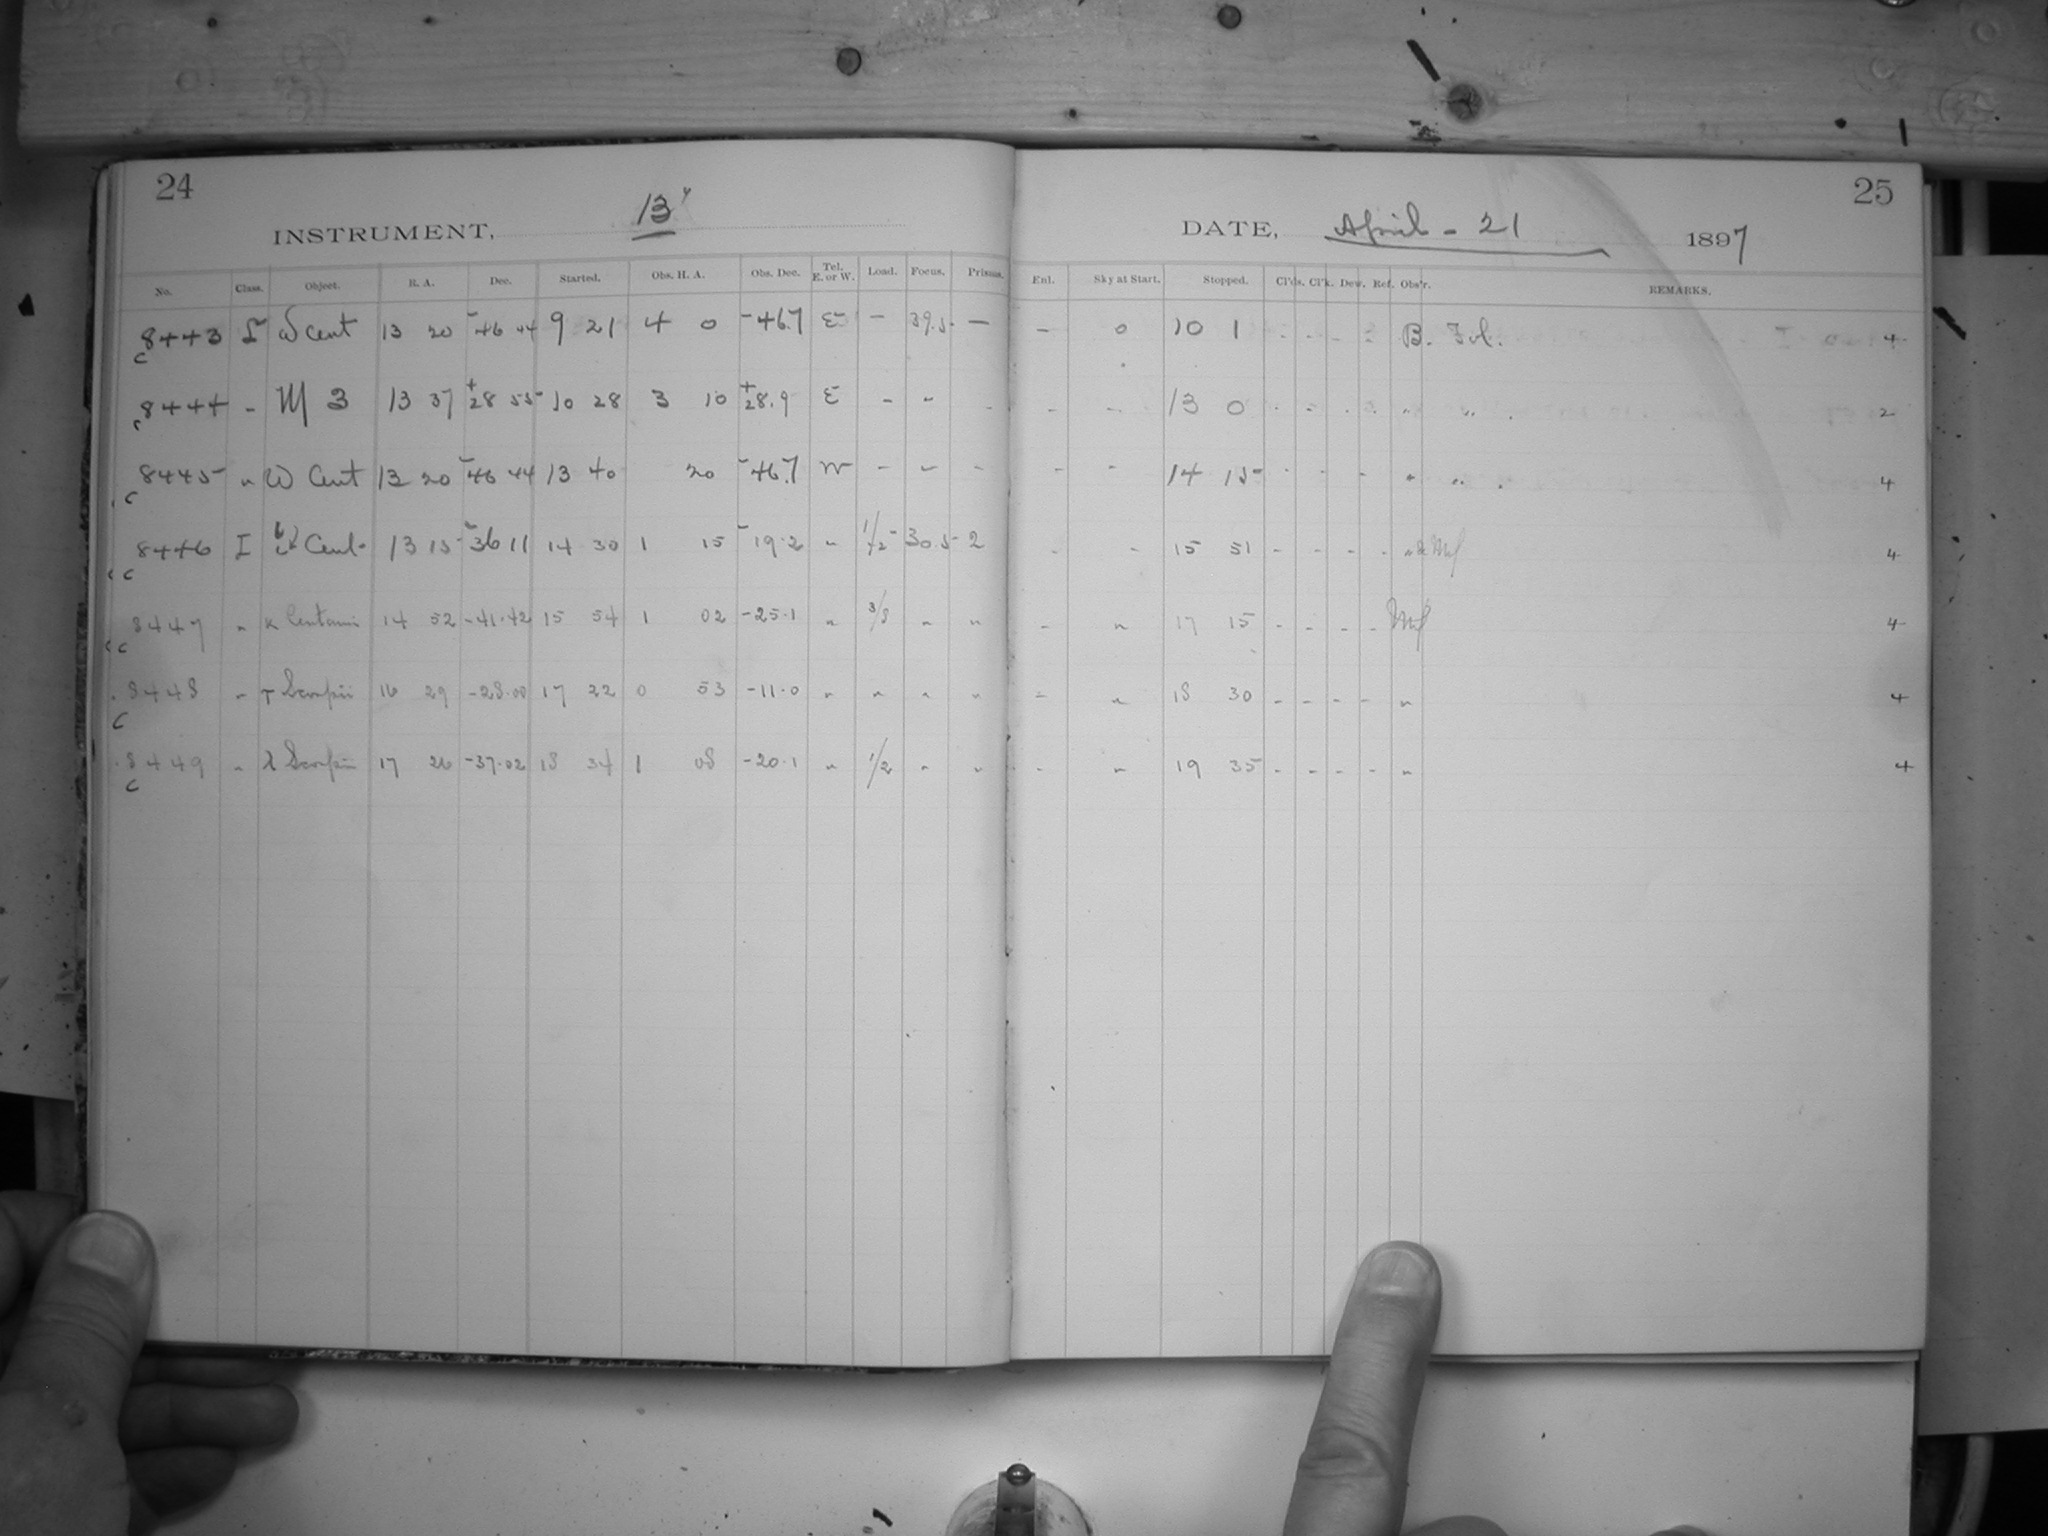 24
INSTRUMENT, 13"
No. Class. Object. R. A. Dec. Started. Obs. H. A. Obs. Dec. Tel. E. or W. Load. Focus. Prisms.
8443 ω Cent 13 20 -46 44 9 21 4 0 -46.7 E - 39.5 -
C
8444 - M 3 13 37 +28 55 10 28 3 10 +28.9 E - - -
C
8445 " ω Cent 13 20 -46 44 13 40 20 -46.7 W - - -
C
8446 I Cent. 13 15 -36 11 14 30 1 15 -19.2 " 1/2 30.5 2
C
8447 " κ Centauri 14 52 -41.42 15 54 1 02 -25.1 " 3/8 " "
C
8448 " τ Scorpii 16 29 -28.00 17 22 0 53 -11.0 " " " "
C
8449 " λ Scorpii 17 26 -37.02 18 34 1 08 -20.1 " 1/2 " "
C
25
DATE, April - 21 1897
Enl. Sky at Start. Stopped. Cl'ds. Cl'k. Dew. Ref. Obs'r. REMARKS.
- 0 10 1 - - - - B. 4
- - 13 0 - - - - " " 2
- - 14 15 - - - - " " 4
- - 15 51 - - - - " & 4
- " 17 15 - - - - 4
- " 18 30 - - - - " 4
- " 19 35 - - - - " 4